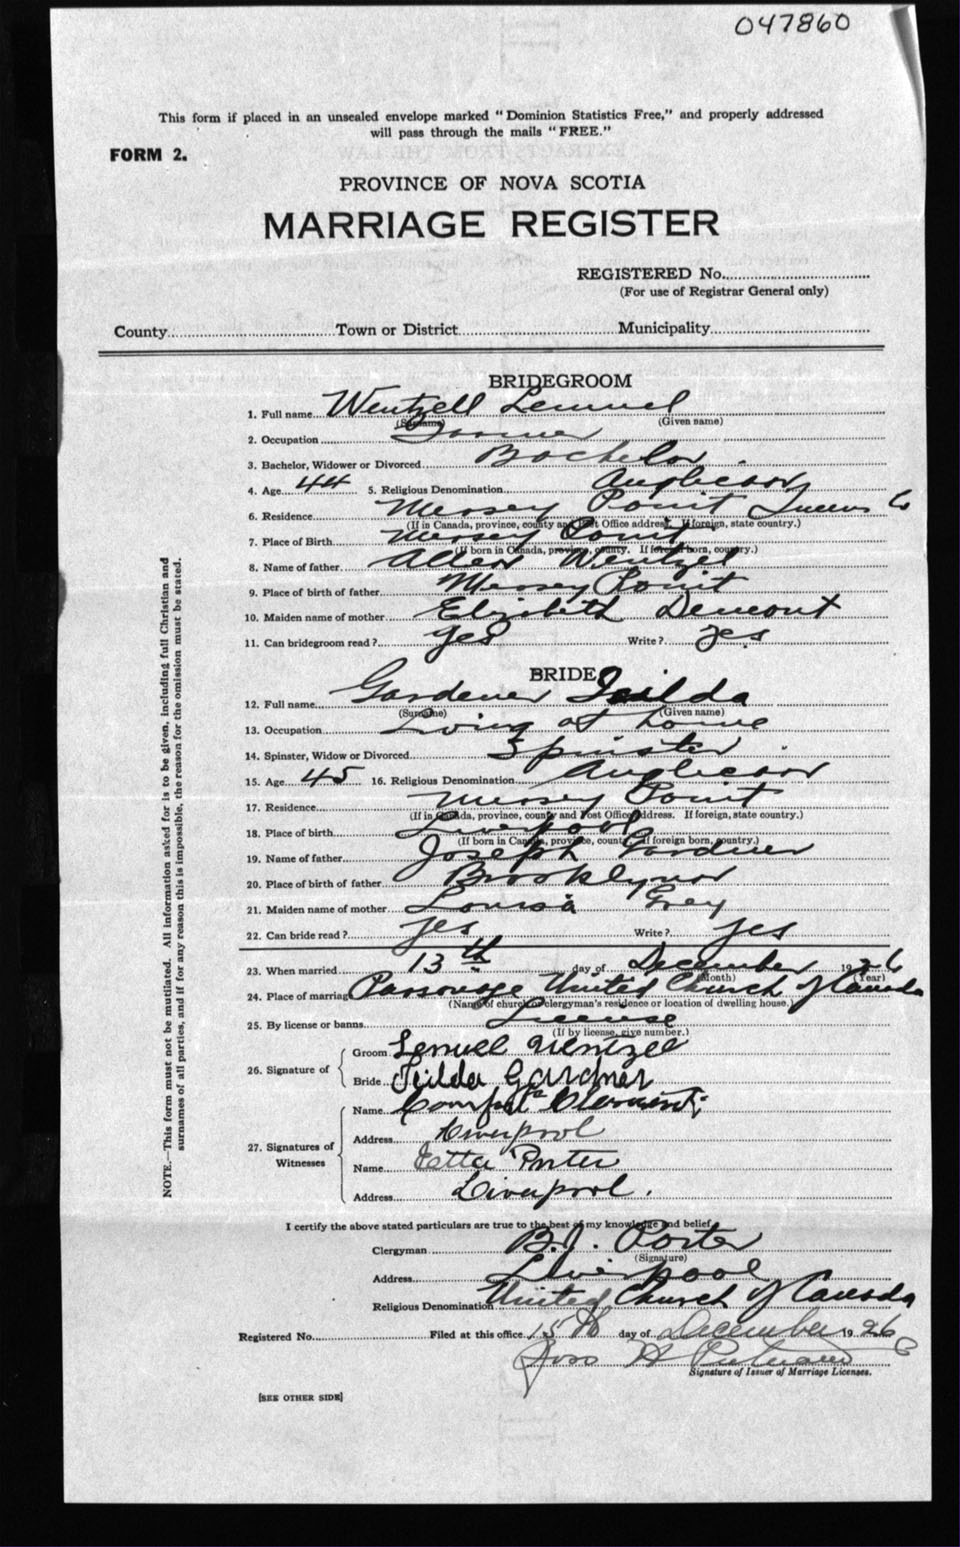 047860
This form if placed in an unsealed envelope marked "Dominion Statistics Free," and properly addressed
will pass through the mails "FREE."
FORM 2.
PROVINCE OF NOVA SCOTIA
MARRIAGE REGISTER
REGISTERED No.
(For use of Registrar General only)
County Town or District Municipality
BRIDEGROOM
1. Full name Wentzell Lemuel
(Surname) (Given name)
2. Occupation
3. Bachelor, Widower or Divorced Bachelor
4. Age 44 5. Religious Denomination Anglican
6. Residence Mersey Point Queens Co
(If in Canada, province, county and Post Office address. If foreign, state country.)
7. Place of Birth Mersey Point
(If born in Canada, province, county. If foreign born, country.)
8. Name of father Allen Wentzel
9. Place of birth of father Mersey Point
10. Maiden name of mother Elizibeth Demont
11. Can bridegroom read ? yes Write ? yes
BRIDE
12. Full name Gardener
(Surname) (Given name)
13. Occupation Living at home
14. Spinster, Widow or Divorced Spinster
15. Age 45 16. Religious Denomination Anglican
17. Residence Mersey Point
(If in Canada, province, county and Post Office address. If foreign, state country.)
18. Place of birth Liverpool
(If born in Canada, province, county. If foreign born, country.)
19. Name of father Joseph Gardner
20. Place of birth of father
21. Maiden name of mother Louisa Grey
22. Can bride read ? yes Write ? yes
23. When married 13th day of December 1926
(Month) (Year)
24. Place of marriage Parsonage United Church of Canada
(Name of church or clergyman's residence or location of dwelling house.)
25. By license or banns License
(If by license, give number.)
26. Signature of
Groom Lemuel Wentzell
Bride Gardner
27. Signatures of Witnesses
Name
Address Liverpool
Name Etta Porter
Address Liverpool.
I certify the above stated particulars are true to the best of my knowledge and belief
Clergyman B. J. Porter
(Signature)
Address Liverpool
Religious Denomination United Church of Canada
Registered No. Filed at this office 15th day of December 1926
Signature of Issuer of Marriage Licenses.
[SEE OTHER SIDE]
NOTE.—This form must not be mutilated. All information asked for is to be given, including full Christian and
surnames of all parties, and if for any reason this is impossible, the reason for the omission must be stated.